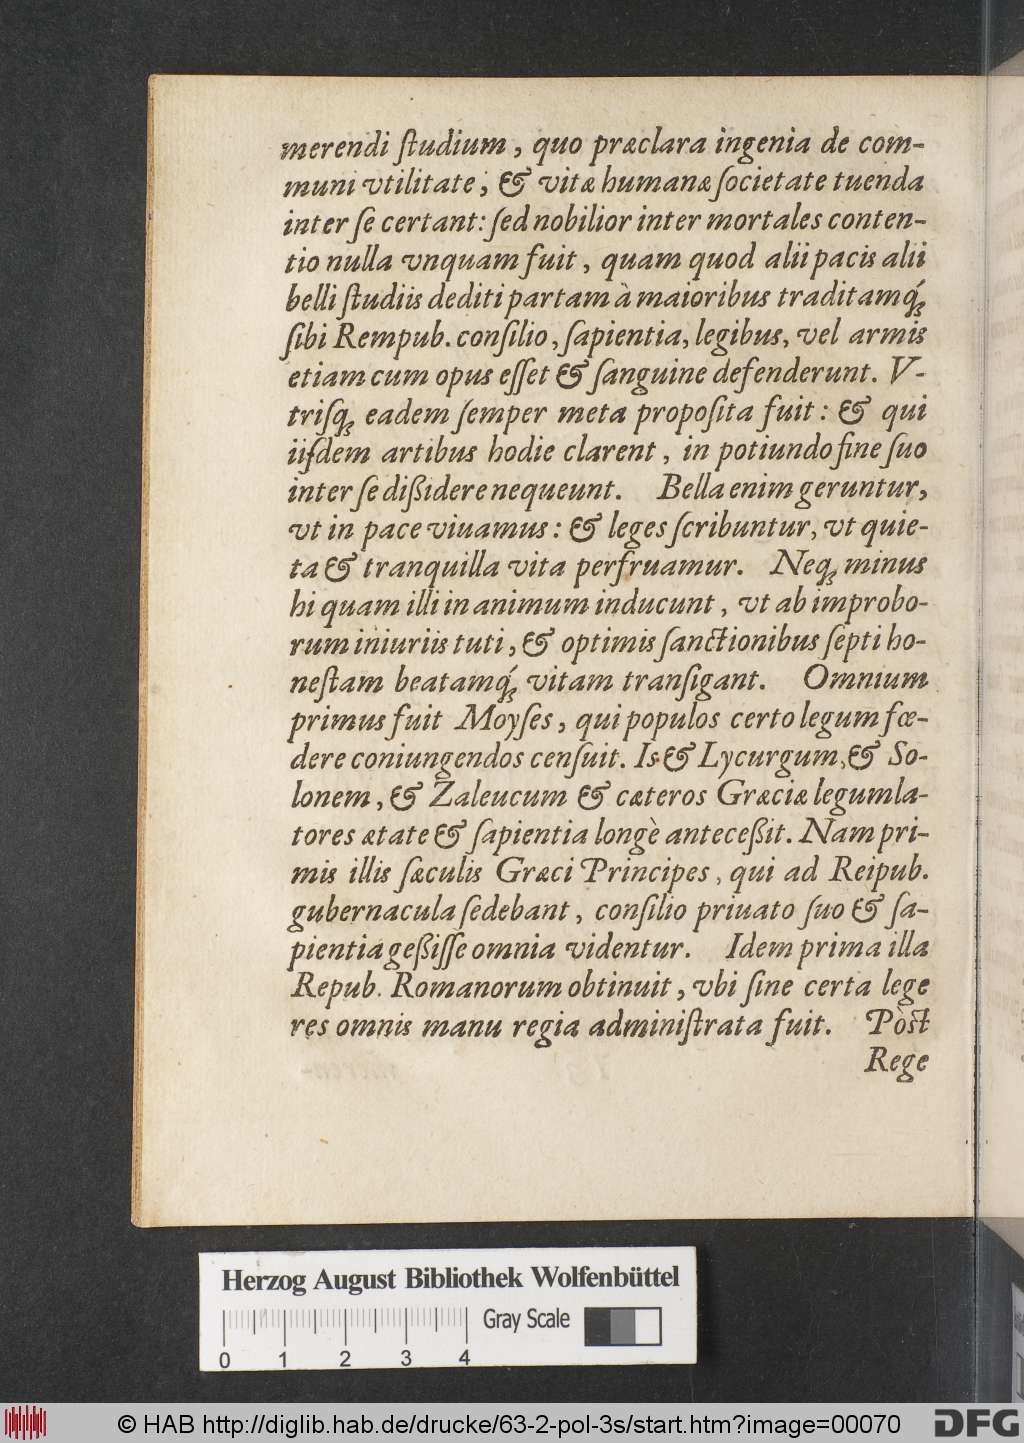 merendi ſtudium, quo præclara ingenia de com-
muni vtilitate, & vitæ humanæ ſocietate tuenda
inter ſe certant: ſed nobilior inter mortales conten-
tio nulla vnquam fuit, quam quod alii pacis alii
belli ſtudiis dediti partam à maioribus traditamq́;
ſibi Rempub. conſilio, ſapientia, legibus, vel armis
etiam cum opus eſſet & ſanguine defenderunt. V-
triſq; eadem ſemper meta propoſita fuit: & qui
iiſdem artibus hodie clarent, in potiundo fine ſuo
inter ſe dißidere nequeunt. Bella enim geruntur,
vt in pace viuamus: & leges ſcribuntur, vt quie-
ta & tranquilla vita perfruamur. Neq; minus
hi quam illi in animum inducunt, vt ab improbo-
rum iniuriis tuti, & optimis ſanctionibus ſepti ho-
neſtam beatamq́; vitam tranſigant. Omnium
primus fuit Moyſes, qui populos certo legum fœ-
dere coniungendos cenſuit. Is & Lycurgum, & So-
lonem, & Zaleucum & cæteros Græciæ legumla-
tores ætate & ſapientia longè anteceßit. Nam pri-
mis illis ſæculis Græci Principes, qui ad Reipub.
gubernacula ſedebant, conſilio priuato ſuo & ſa-
pientia geßiſſe omnia videntur. Idem prima illa
Repub. Romanorum obtinuit, vbi ſine certa lege
res omnis manu regia adminiſtrata fuit. Pòſt
Rege
Herzog August Bibliothek Wolfenbüttel
Gray Scale
0 1 2 3 4
© HAB http://diglib.hab.de/drucke/63-2-pol-3s/start.htm?image=00070
DFG